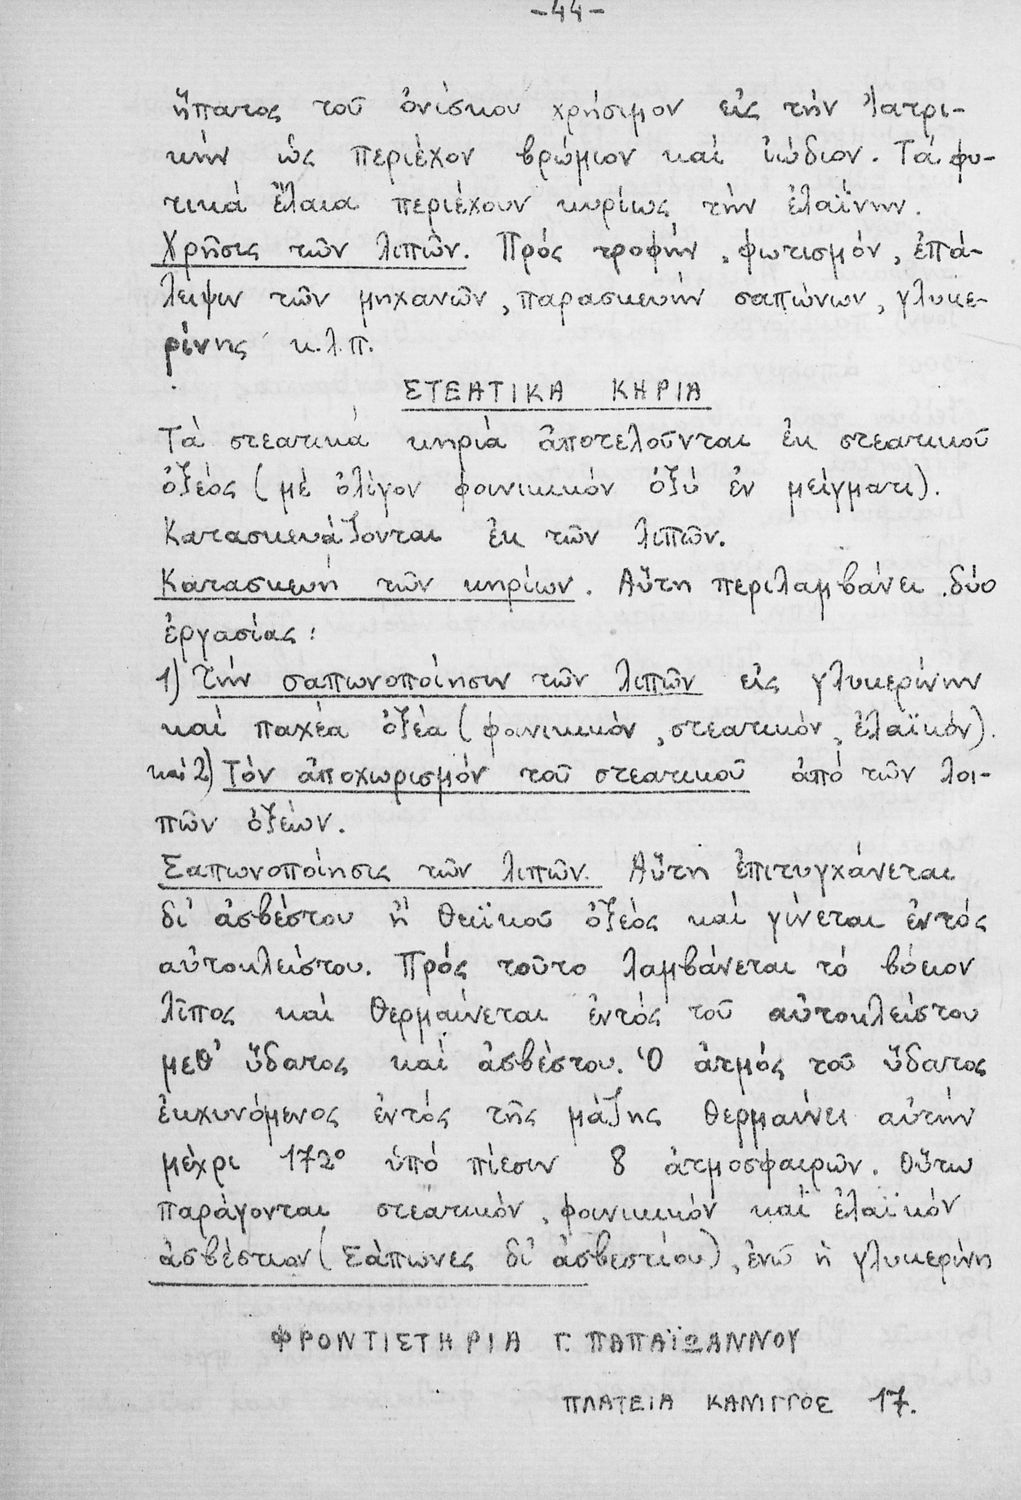 -44-
ἥπατος τοῦ ὀνίσκου χρήσιμον εἰς τήν Ἰατρι-
κήν ὡς περιέχον βρώμιον καί ἰώδιον. Τά φυ-
τικά ἔλαια περιέχουν κυρίως τήν ἐλαΐνην.
Χρῆσις τῶν λιπῶν. Πρός τροφήν, φωτισμόν, ἐπά-
λειψιν τῶν μηχανῶν, παρασκευήν σαπώνων, γλυκε-
ρίνης κ.λ.π.
ΣΤΕΑΤΙΚΑ ΚΗΡΙΑ
Τά στεατικά κηρία ἀποτελοῦνται ἐκ στεατικοῦ
ὀξέος (μέ ὀλίγον φοινικικόν ὀξύ ἐν μείγματι).
Κατασκευάζονται ἐκ τῶν λιπῶν.
Κατασκευή τῶν κηρίων. Αὕτη περιλαμβάνει δύο
ἐργασίας:
1) Τήν σαπωνοποίησιν τῶν λιπῶν εἰς γλυκερίνην
καί παχέα ὀξέα (φοινικικόν, στεατικόν, ἐλαϊκόν).
καί 2) Τόν ἀποχωρισμόν τοῦ στεατικοῦ ἀπό τῶν λοι-
πῶν ὀξέων.
Σαπωνοποίησις τῶν λιπῶν. Αὕτη ἐπιτυγχάνεται
δι' ἀσβέστου ἤ θειϊκοῦ ὀξέος καί γίνεται ἐντός
αὐτοκλείστου. Πρός τοῦτο λαμβάνεται τό βόειον
λῖπος καί θερμαίνεται ἐντός τοῦ αὐτοκλείστου
μεθ' ὕδατος καί ἀσβέστου. Ὁ ἀτμός τοῦ ὕδατος
ἐκχυνόμενος ἐντός τῆς μάζης θερμαίνει αὐτήν
μέχρι 172° ὑπό πίεσιν 8 ἀτμοσφαιρῶν. Οὕτω
παράγονται στεατικόν, φοινικικόν καί ἐλαϊκόν
ἀσβέστιον (Σάπωνες δι' ἀσβεστίου), ἐνῶ ἡ γλυκερίνη
ΦΡΟΝΤΙΣΤΗΡΙΑ Γ. ΠΑΠΑΪΩΑΝΝΟΥ
ΠΛΑΤΕΙΑ ΚΑΝΙΓΓΟΣ 17.